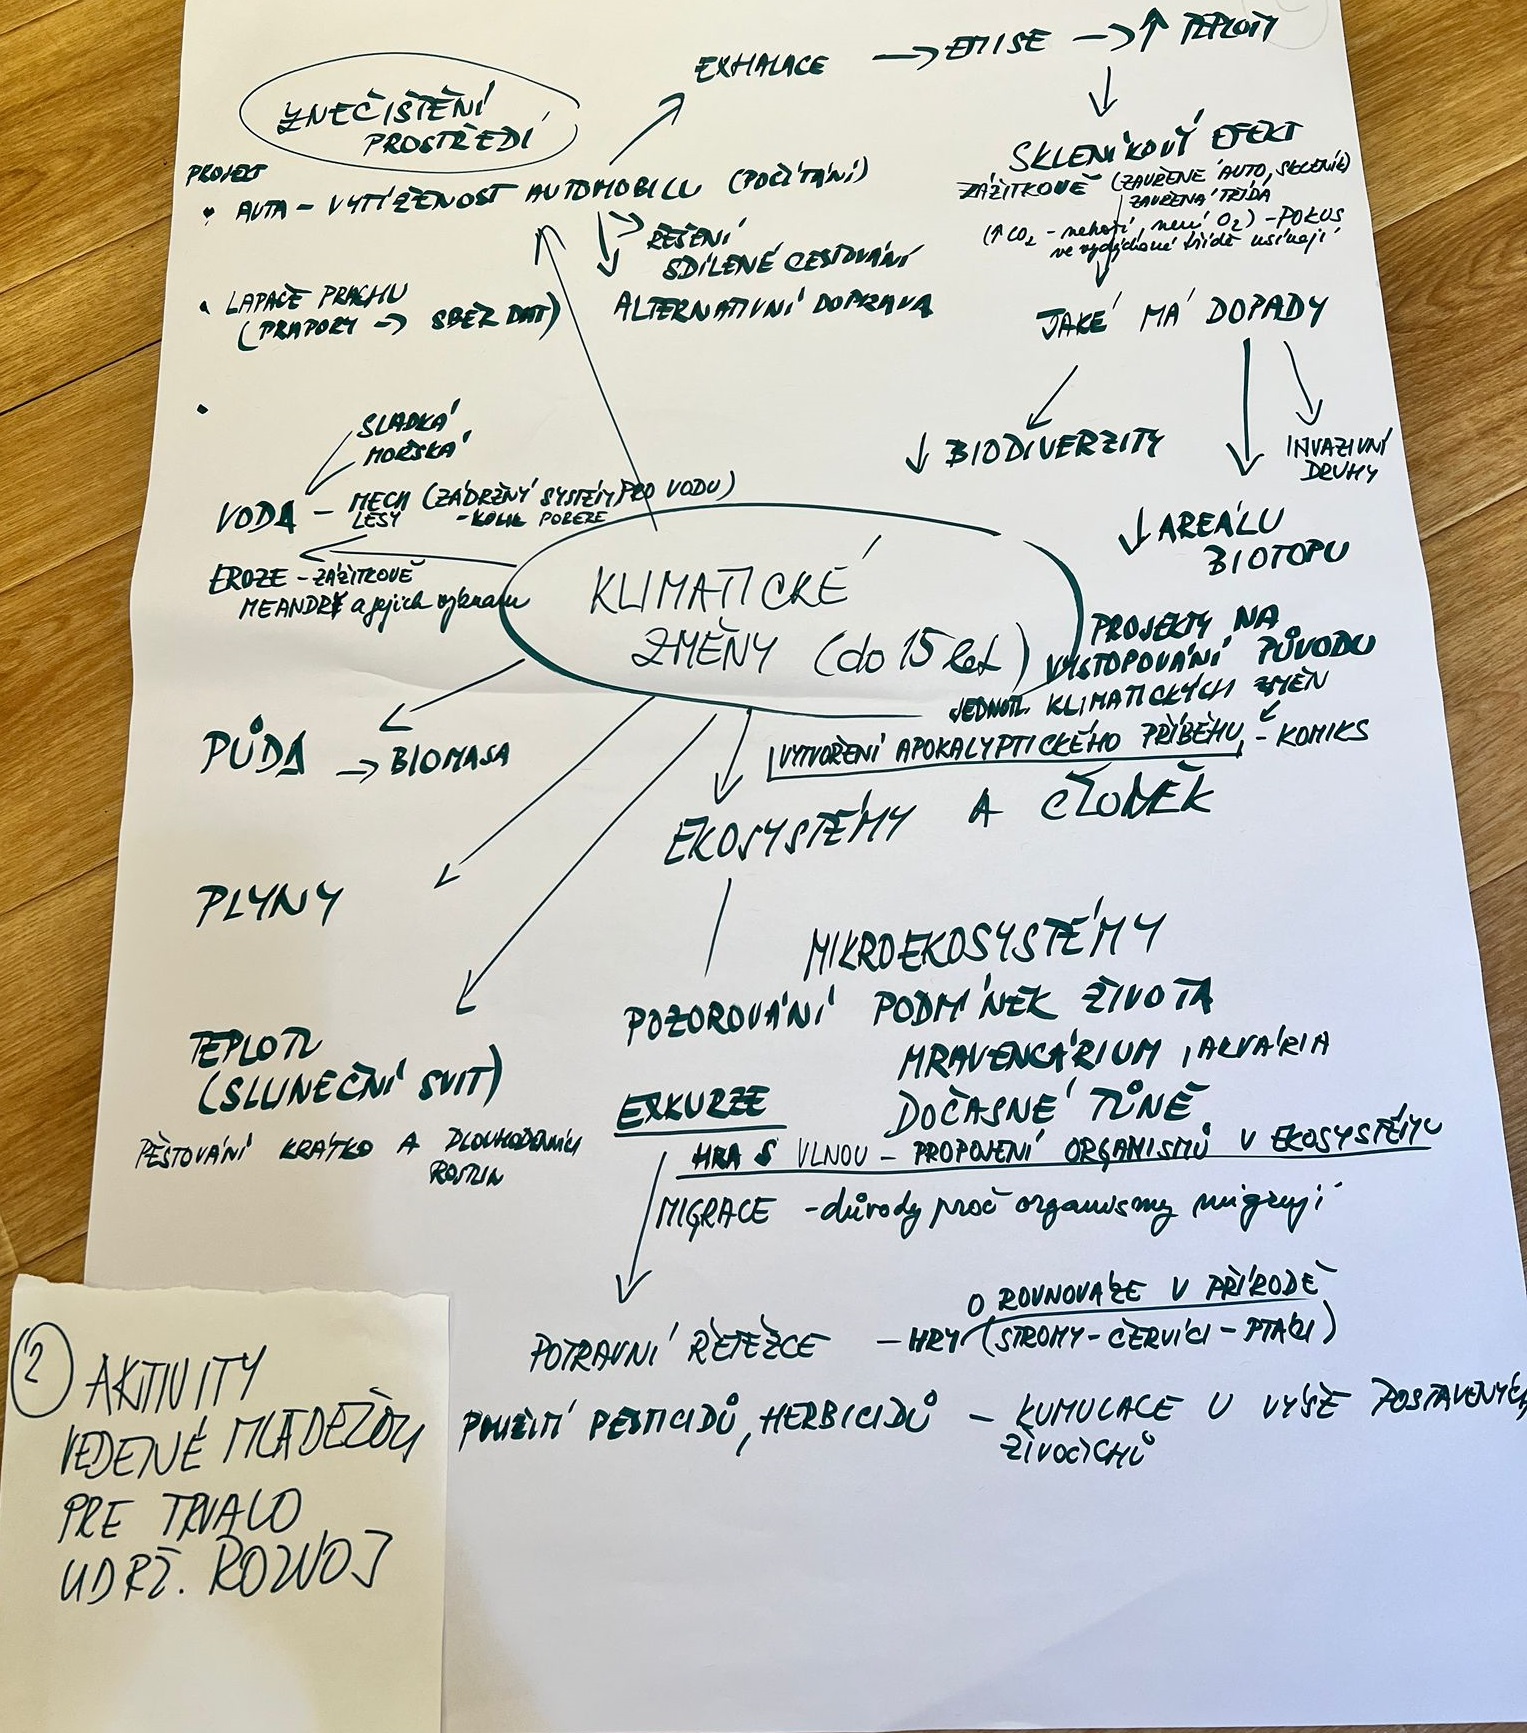 EXHALACE → EMISE → ↑ TEPLOTY
ZNEČIŠTĚNÍ
PROSTŘEDÍ
PROJEKT
• AUTA – VYTÍŽENOST AUTOMOBILU (POČÍTÁNÍ)
ŘEŠENÍ
SDÍLENÉ CESTOVÁNÍ
ALTERNATIVNÍ DOPRAVA
• LAPAČE PRACHU
(PRAPORY → SBĚR DAT)
•
SKLENÍKOVÝ EFEKT
ZÁŽITKOVĚ (ZAVŘENÉ AUTO, SKLENÍK)
ZAVŘENÁ TŘÍDA
(↑ CO₂ – nehoří, není O₂) – POKUS
ve vydýchané třídě usínají
JAKÉ MÁ DOPADY
↓ BIODIVERZITY
INVAZIVNÍ
DRUHY
↓ AREÁLU
BIOTOPU
SLADKÁ
MOŘSKÁ
VODA – MECH (ZÁDRŽNÝ SYSTÉM PRO VODU)
LESY – KOLIK POBERE
EROZE – ZÁŽITKOVĚ
MEANDRY a jejich význam
KLIMATICKÉ
ZMĚNY (do 15 let)
PROJEKTY NA
VYSTOPOVÁNÍ PŮVODU
JEDNOTL. KLIMATICKÝCH ZMĚN
VYTVOŘENÍ APOKALYPTICKÉHO PŘÍBĚHU – KOMIKS
PŮDA → BIOMASA
EKOSYSTÉMY A ČLOVĚK
PLYNY
MIKROEKOSYSTÉMY
POZOROVÁNÍ PODMÍNEK ŽIVOTA
MRAVENCÁRIUM, AKVÁRIA
DOČASNÉ TŮNĚ
TEPLOTA
(SLUNEČNÍ SVIT)
PĚSTOVÁNÍ KRÁTKO A DLOUHODENNÍCH
ROSTLIN
EXKURZE
HRA S VLNOU – PROPOJENÍ ORGANISMŮ V EKOSYSTÉMU
MIGRACE – důvody proč organismy migrují
O ROVNOVÁZE V PŘÍRODĚ
POTRAVNÍ ŘETĚZCE – HRY (STROMY – ČERVÍCI – PTÁCI)
POUŽITÍ PESTICIDŮ, HERBICIDŮ – KUMULACE U VÝŠE POSTAVENÝCH
ŽIVOČICHŮ
2 AKTIVITY
VEDENÉ MLÁDEŽOU
PRE TRVALO
UDRŽ. ROZVOJ